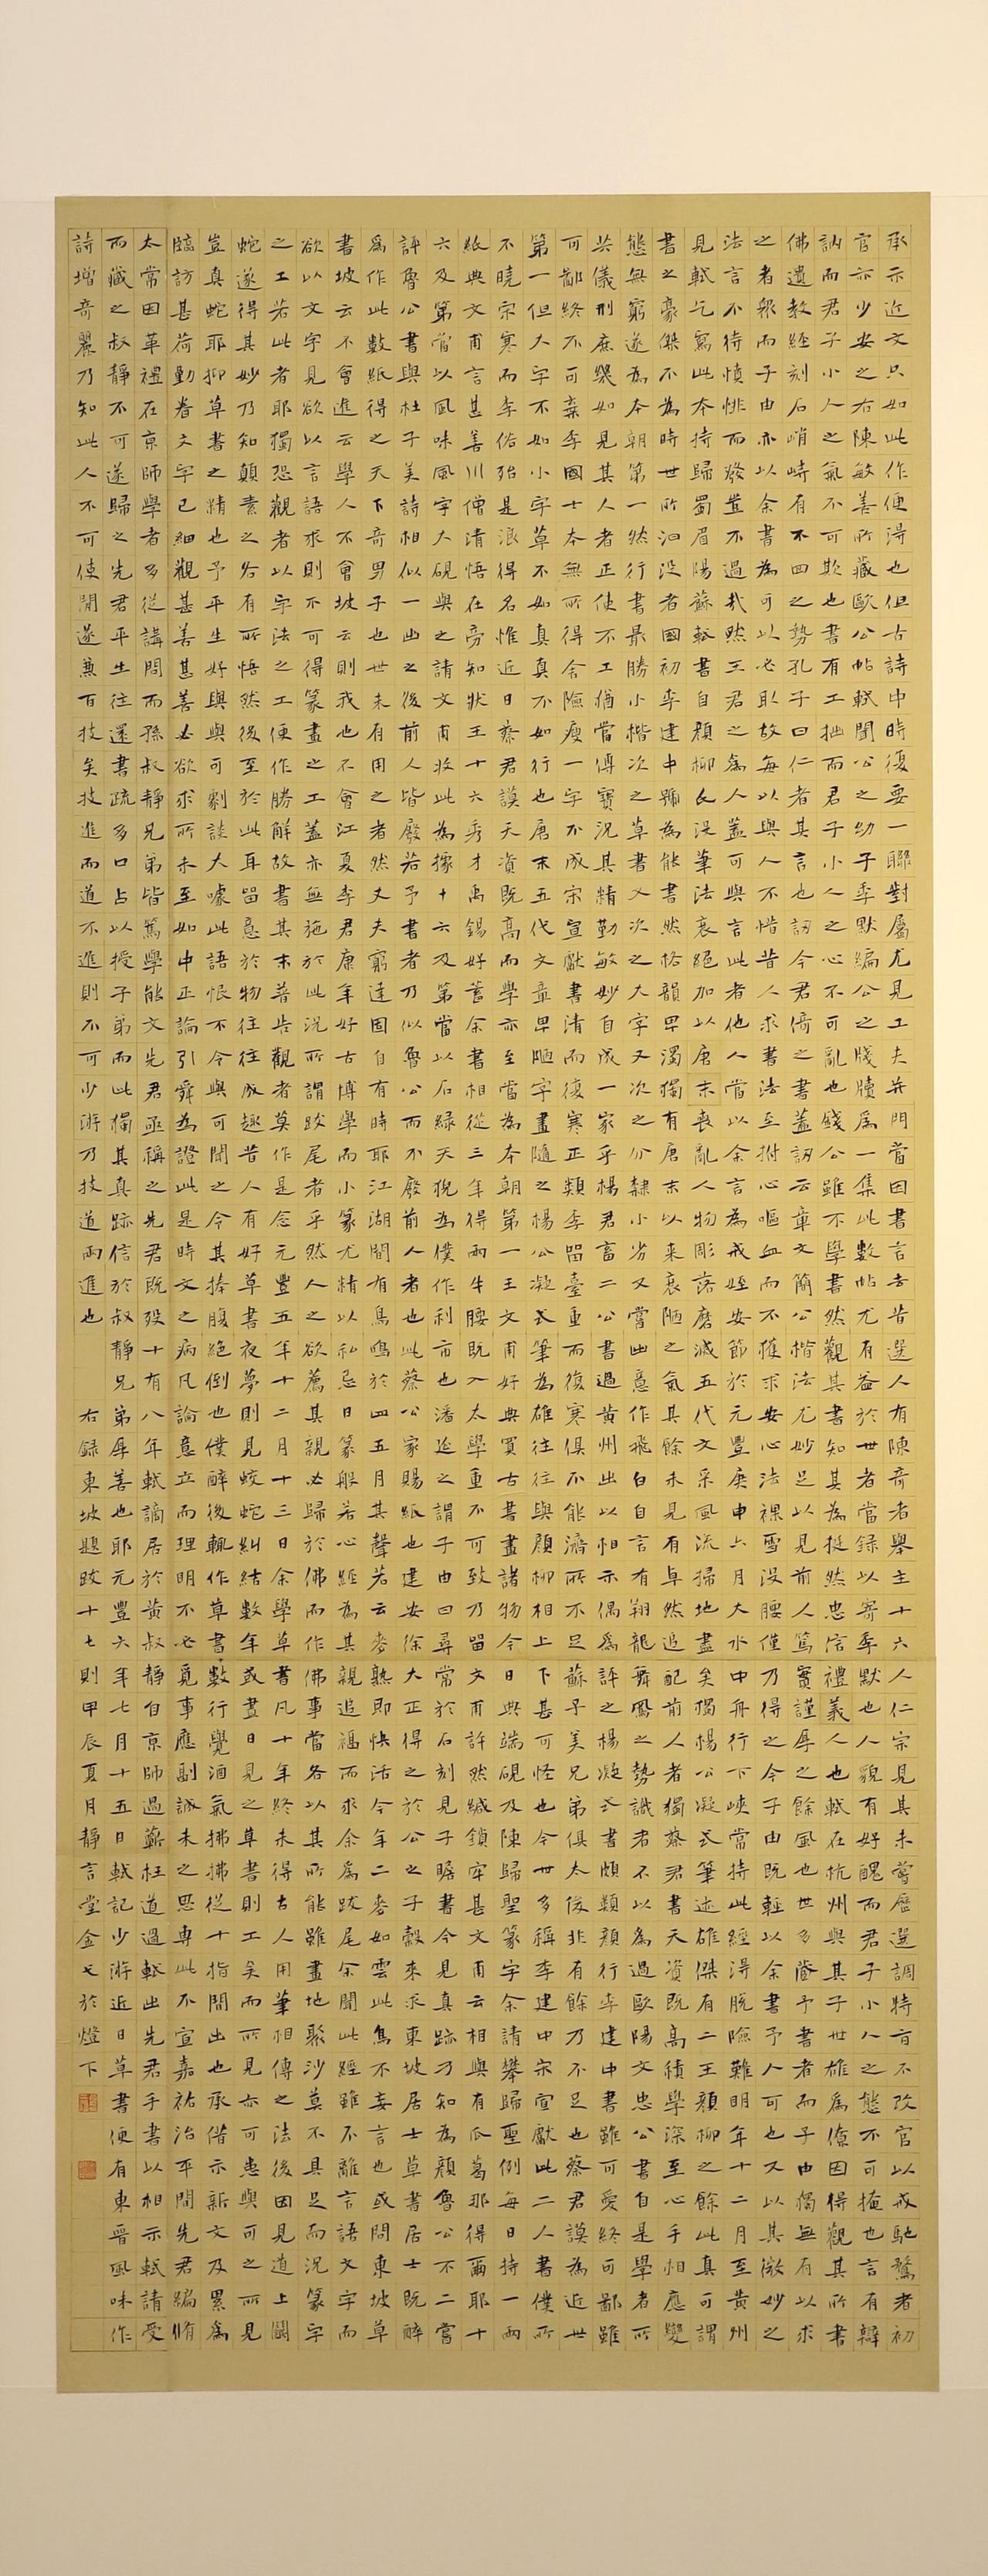 承示近文只如此作便得也但古詩中時復要一聯對屬尤見工夫并門當因書言者昔選人有陳奇者舉主十六人仁宗見其未嘗歷選調特旨不改官以戒馳騖者初
官亦少安之右陳敏善所藏歐公帖軾聞公之幼子季默編公之牋牘為一集此數帖尤有益於世者當錄以寄季默也人貌有好醜而君子小人之態不可掩也言有辯
訥而君子小人之氣不可欺也書有工拙而君子小人之心不可亂也錢公雖不學書然觀其書知其為挺然忠信禮義人也軾在杭州與其子世雄為僚因得觀其所書
佛遺教經刻石峭峙有不回之勢孔子曰仁者其言也訒今君倚之書蓋訒云章文簡公楷法尤妙足以見前人篤實謹厚之餘風也世多予書者而子由獨無有以求
之者衆而子由亦以余書為可以必取故每以與人不惜昔人求書法至拊心嘔血而不獲求安心法裸雪沒腰僅乃得之今子由既輕以余書予人可也又以其微妙之
法言不待憤悱而發豈不過哉然王君之為人蓋可與言此者他人當以余言為戒姪安節於元豐庚申六月大水中舟行下峽當持此經得脫險難明年十二月至黃州
見軾乞寫此本持歸蜀眉陽蘇軾書自顏柳氏沒筆法衰絕加以唐末喪亂人物彫落磨滅五代文采風流掃地盡矣獨楊公凝式筆迹雄傑有二王顏柳之餘此真可謂
書之豪傑不為時世所汩沒者國初李建中號為能書然格韻卑濁獨有唐末以來衰陋之氣其餘未見有卓然追配前人者獨蔡君書天資既高積學深至心手相應變
態無窮遂為本朝第一然行書最勝小楷次之草書又次之大字又次之分隸小劣又嘗出意作飛白自言有翔龍舞鳳之勢識者不以為過歐陽文忠公書自是學者所
共儀刑庶幾如見其人者正使不工猶當傳寶況其精勤敏妙自成一家乎楊君畜二公書過黃州出以相示偶為評之楊凝式書頗類顏行李建中書雖可愛終可鄙雖
可鄙終不可棄李國士本無所得舍險瘦一字不成宋宣獻書清而復寒正類李留臺重而復寒俱不能濟所不足蘇子美兄弟俱太俊非有餘乃不足也蔡君謨為近世
第一但大字不如小字草不如真真不如行也唐末五代文章卑陋字畫隨之楊公凝式筆為雄往往與顏柳相上下甚可怪也今世多稱李建中宋宣獻此二人書僕所
不曉宋寒而李俗殆是浪得名惟近日蔡君謨天資既高而學亦至當為本朝第一王文甫好典買古書畫諸物今日典端硯及陳歸聖篆字余請攀歸聖例每日持一兩
紙典文甫言甚善川僧清悟在旁知狀王十六秀才禹錫好蓄余書相從三年得兩牛腰既入太學重不可致乃留文甫許然緘鎖牢甚文甫云相與有瓜葛那得爾耶十
六及第當以風味風字大硯與之請文甫收此為據十六及第當以石綠天猊為僕作利市也潘延之謂子由曰尋常於石刻見子瞻書今見真跡乃知為顏魯公不二嘗
評魯公書與杜子美詩相似一出之後前人皆廢若予書者乃似魯公而不廢前人者也此蔡公家賜紙也建安徐大正得之於公之子穀來求東坡居士草書居士既醉
為作此數紙得之天下奇男子也世未有用之者然丈夫窮達固自有時耶江湖間有鳥鳴於四五月其聲若云麥熟即快活今年二麥如雲此鳥不妄言也或問東坡草
書坡云不會進云學人不會坡云則我也不會江夏李君康年好古博學而小篆尤精以私忌日篆般若心經為其親追福而求余為跋尾余聞此經雖不離言語文字而
欲以文字見欲以言語求則不可得篆畫之工蓋亦無施於此況所謂跋尾者乎然人之欲薦其親必歸於佛而作佛事當各以其所能雖畫地聚沙莫不具足而況篆字
之工若此者耶獨恐觀者以字法之工便作勝解故書其末普告觀者莫作是念元豐五年十二月十三日余學草書凡十年終未得古人用筆相傳之法後因見道上鬭
蛇遂得其妙乃知顛素之各有所悟然後至於此耳留意於物往往成趣昔人有好草書夜夢則見蛟蛇糾結數年或晝日見之草書則工矣而所見亦可患與可之所見
豈真蛇耶抑草書之精也予平生好與與可劇談大噱此語恨不令與可聞之令其捧腹絕倒也僕醉後輒作草書數行覺酒氣拂拂從十指間出也承借示新文及累為
臨訪甚荷勤眷文字已細觀甚善甚善必欲求所未至如中正論引舜為證此是時文之病凡論意立而理明不必覓事應副誠未之思專此不宣嘉祐治平間先君編脩
太常因革禮在京師學者多從講問而孫叔靜兄弟皆篤學能文先君亟稱之先君既歿十有八年軾謫居於黃叔靜自京師過蘄枉道過軾出先君手書以相示軾請受
而藏之叔靜不可遂歸之先君平生往還書疏多口占以授子弟而此獨其真跡信於叔靜兄弟厚善也耶元豐六年七月十五日軾記少游近日草書便有東晉風味作
詩增奇麗乃知此人不可使閒遂兼百技矣技進而道不進則不可少游乃技道兩進也 右錄東坡題跋十七則甲辰夏月靜言堂金弋於燈下